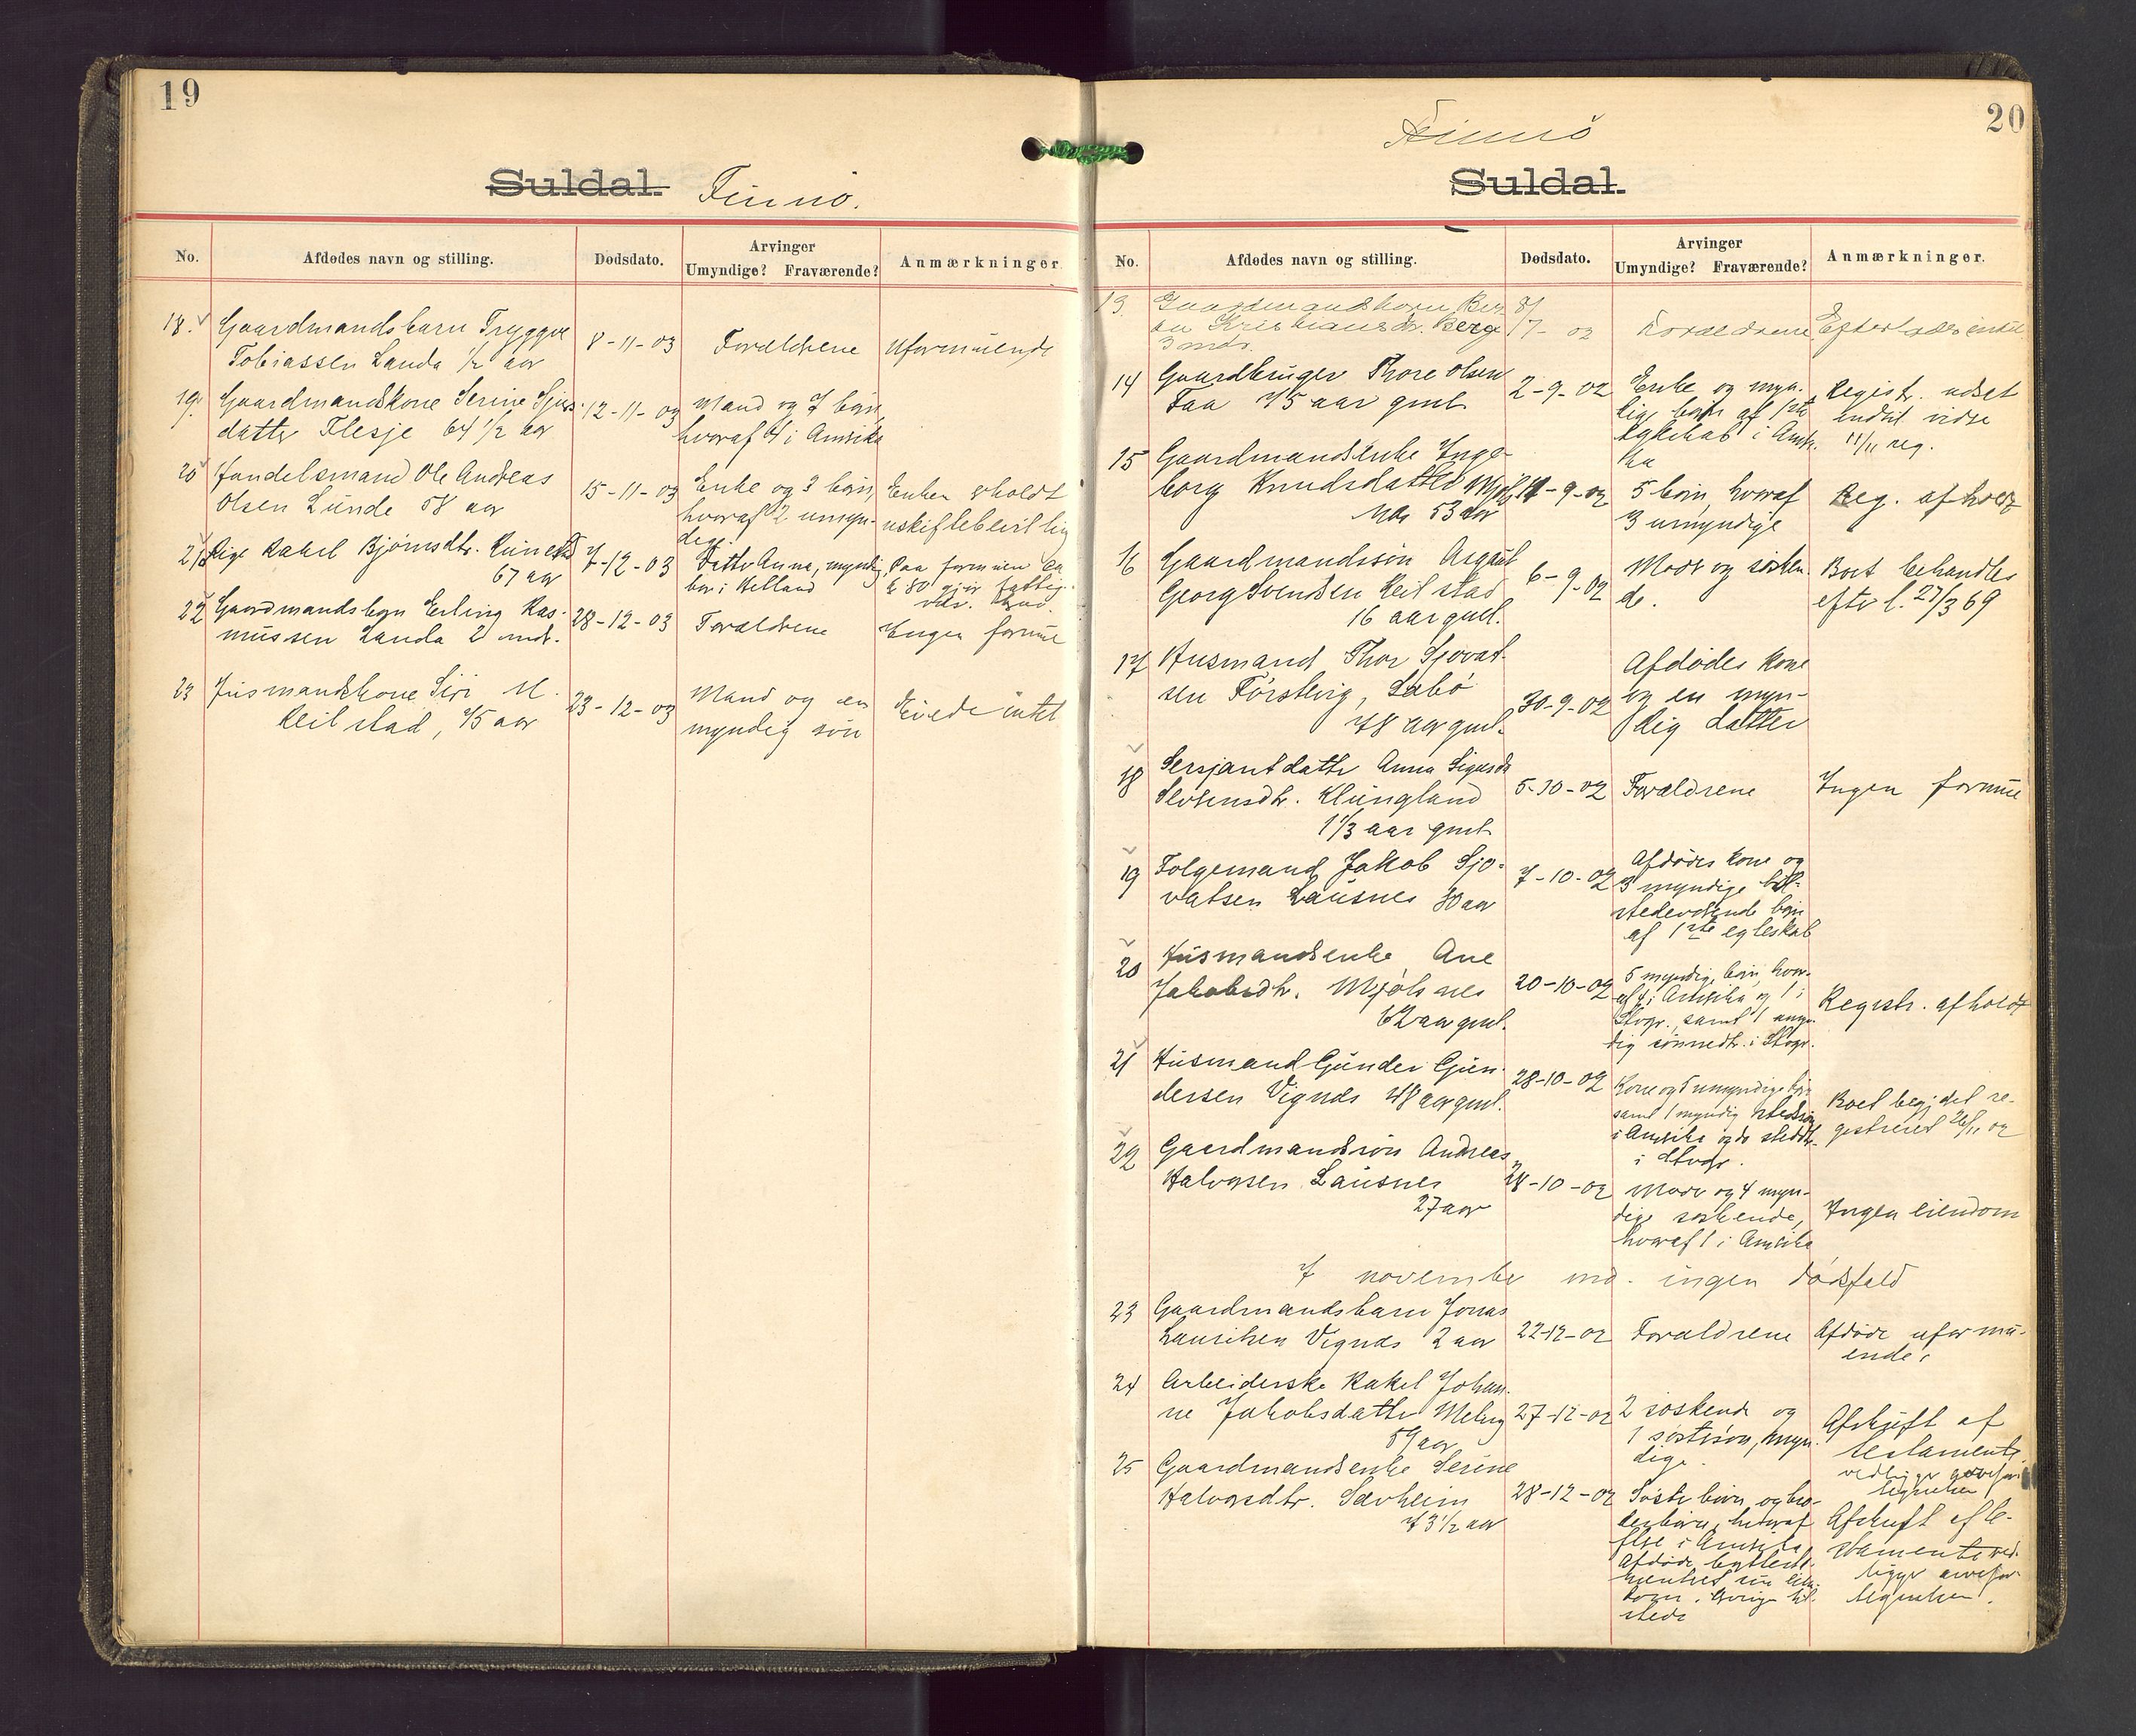 19
Suldal. Finnø.
No.
Afdødes navn og stilling.
Dødsdato.
Arvinger
Umyndige? Fraværende?
Anmærkninger
18. Gaardmandsbarn Tryggve
Tobiassen Landa ½ aar
8-11-03
Forældrene
Uformuende
19. Gaardmandskone Serine Sjurs-
datter Flesje 64 ½ aar
12-11-03
Mand og 7 børn,
hvoraf 4 i Amerika
20 Handelsmand Ole Andreas
Olsen Lunde 58 aar
15-11-03
Enke og 3 børn,
hvoraf 2 umyn-
dige
Enken erholdt
uskiftebevilling
21 Pige Rakel Bjørnsdtr.
67 aar
7-12-03
Datter Anna, myndig
bor i
formuen ca
kr 80
22 Gaardmandsbarn Erling Ras-
mussen Landa 2 mdr.
28-12-03
Forældrene
Ingen formue
23 Husmandskone Siri M.
Reilstad, 75 aar
23-12-03
Mand og en
myndig søn
Eiede intet
20
Finnø
Suldal.
No.
Afdødes navn og stilling.
Dødsdato.
Arvinger
Umyndige? Fraværende?
Anmærkninger.
13. Gaardmandsbarn
Kristiansdr. Berge
3 mdr.
8/7-02
Forældrene
Efterlader intet
14 Gaardbruger Thore Olsen
Faa 75 aar gml.
2-9-02
Enke og myn-
dige børn af 1ste
egteskab i Ameri-
ka
Registr. udsat
indtil vidre
11/11 reg.
15 Gaardmandsenke Inge-
borg Knudsdatter Mjøls-
nes 53 aar
11-9-02
5 børn, hvoraf
3 umyndige
Reg. afholdt
16 Gaardmandssøn Asgaut
Georg Svendsen Reilstad
16 aar gml.
6-9-02
Moder og søsken-
de.
Boet behandles
efter l. 27/3 69
17 Husmand Thor Sjovat-
sen Førsvig, Sæbø
78 aar gml.
30-9-02
Afdødes kone
og en myn-
dig datter
18 Sersjantdatter Anna Sigurda
Klungland
1 1/3 aar gml.
5-10-02
Forældrene
Ingen formue
19 Folgemand Jakob Sjo-
vatsen Lausnes 80 aar
7-10-02
Afdødes kone og
3 myndige til-
stedeværende børn
af 1ste egteskab
20 Husmandsenke Ane
Jakobsdtr. Mjølsnes
62 aar gml.
20-10-02
5 myndige børn, hvor-
af 4 i Amerika og 1 i
Stvgr. samt 1 umyn-
dig sønnedtr. i Stvgr.
Registr. afholdt
21 Husmand Gunder Gun-
dersen Vignes 48 aar gml.
28-10-02
Kone og 5 umyndige børn
samt 1 myndig stedsøn
i Amerika og do steddtr.
i Stvgr.
Boet begj. det re-
gistreret 26/11 02
22 Gaardmandssøn Andreas
Halvorsen Lausnes
27 aar
28-10-02
Moder og 4 myn-
dige søskende,
hvoraf 1 i Amerika
Ingen eiendom
I november md. ingen dødsfald
23 Gaardmandsbarn Jonas
Lauritsen Vignes 2 aar
22-12-02
Forældrene
Afdøde uformu-
ende.
24 Arbeiderske Rakel Johan-
ne Jakobsdatter Meling
59 aar
27-12-02
2 søskende og
1 søstersøn, myn-
dige.
Afskrift af
testamente
vedligger
25 Gaardmandsenke Serine
Halvorsdtr. Sævheim
73 ½ aar
28-12-02
Søsterbørn og bro-
derbørn, hvoraf
flere i Amerika
Afdøde
stede
Afskrift af te-
stamente ved-
ligger